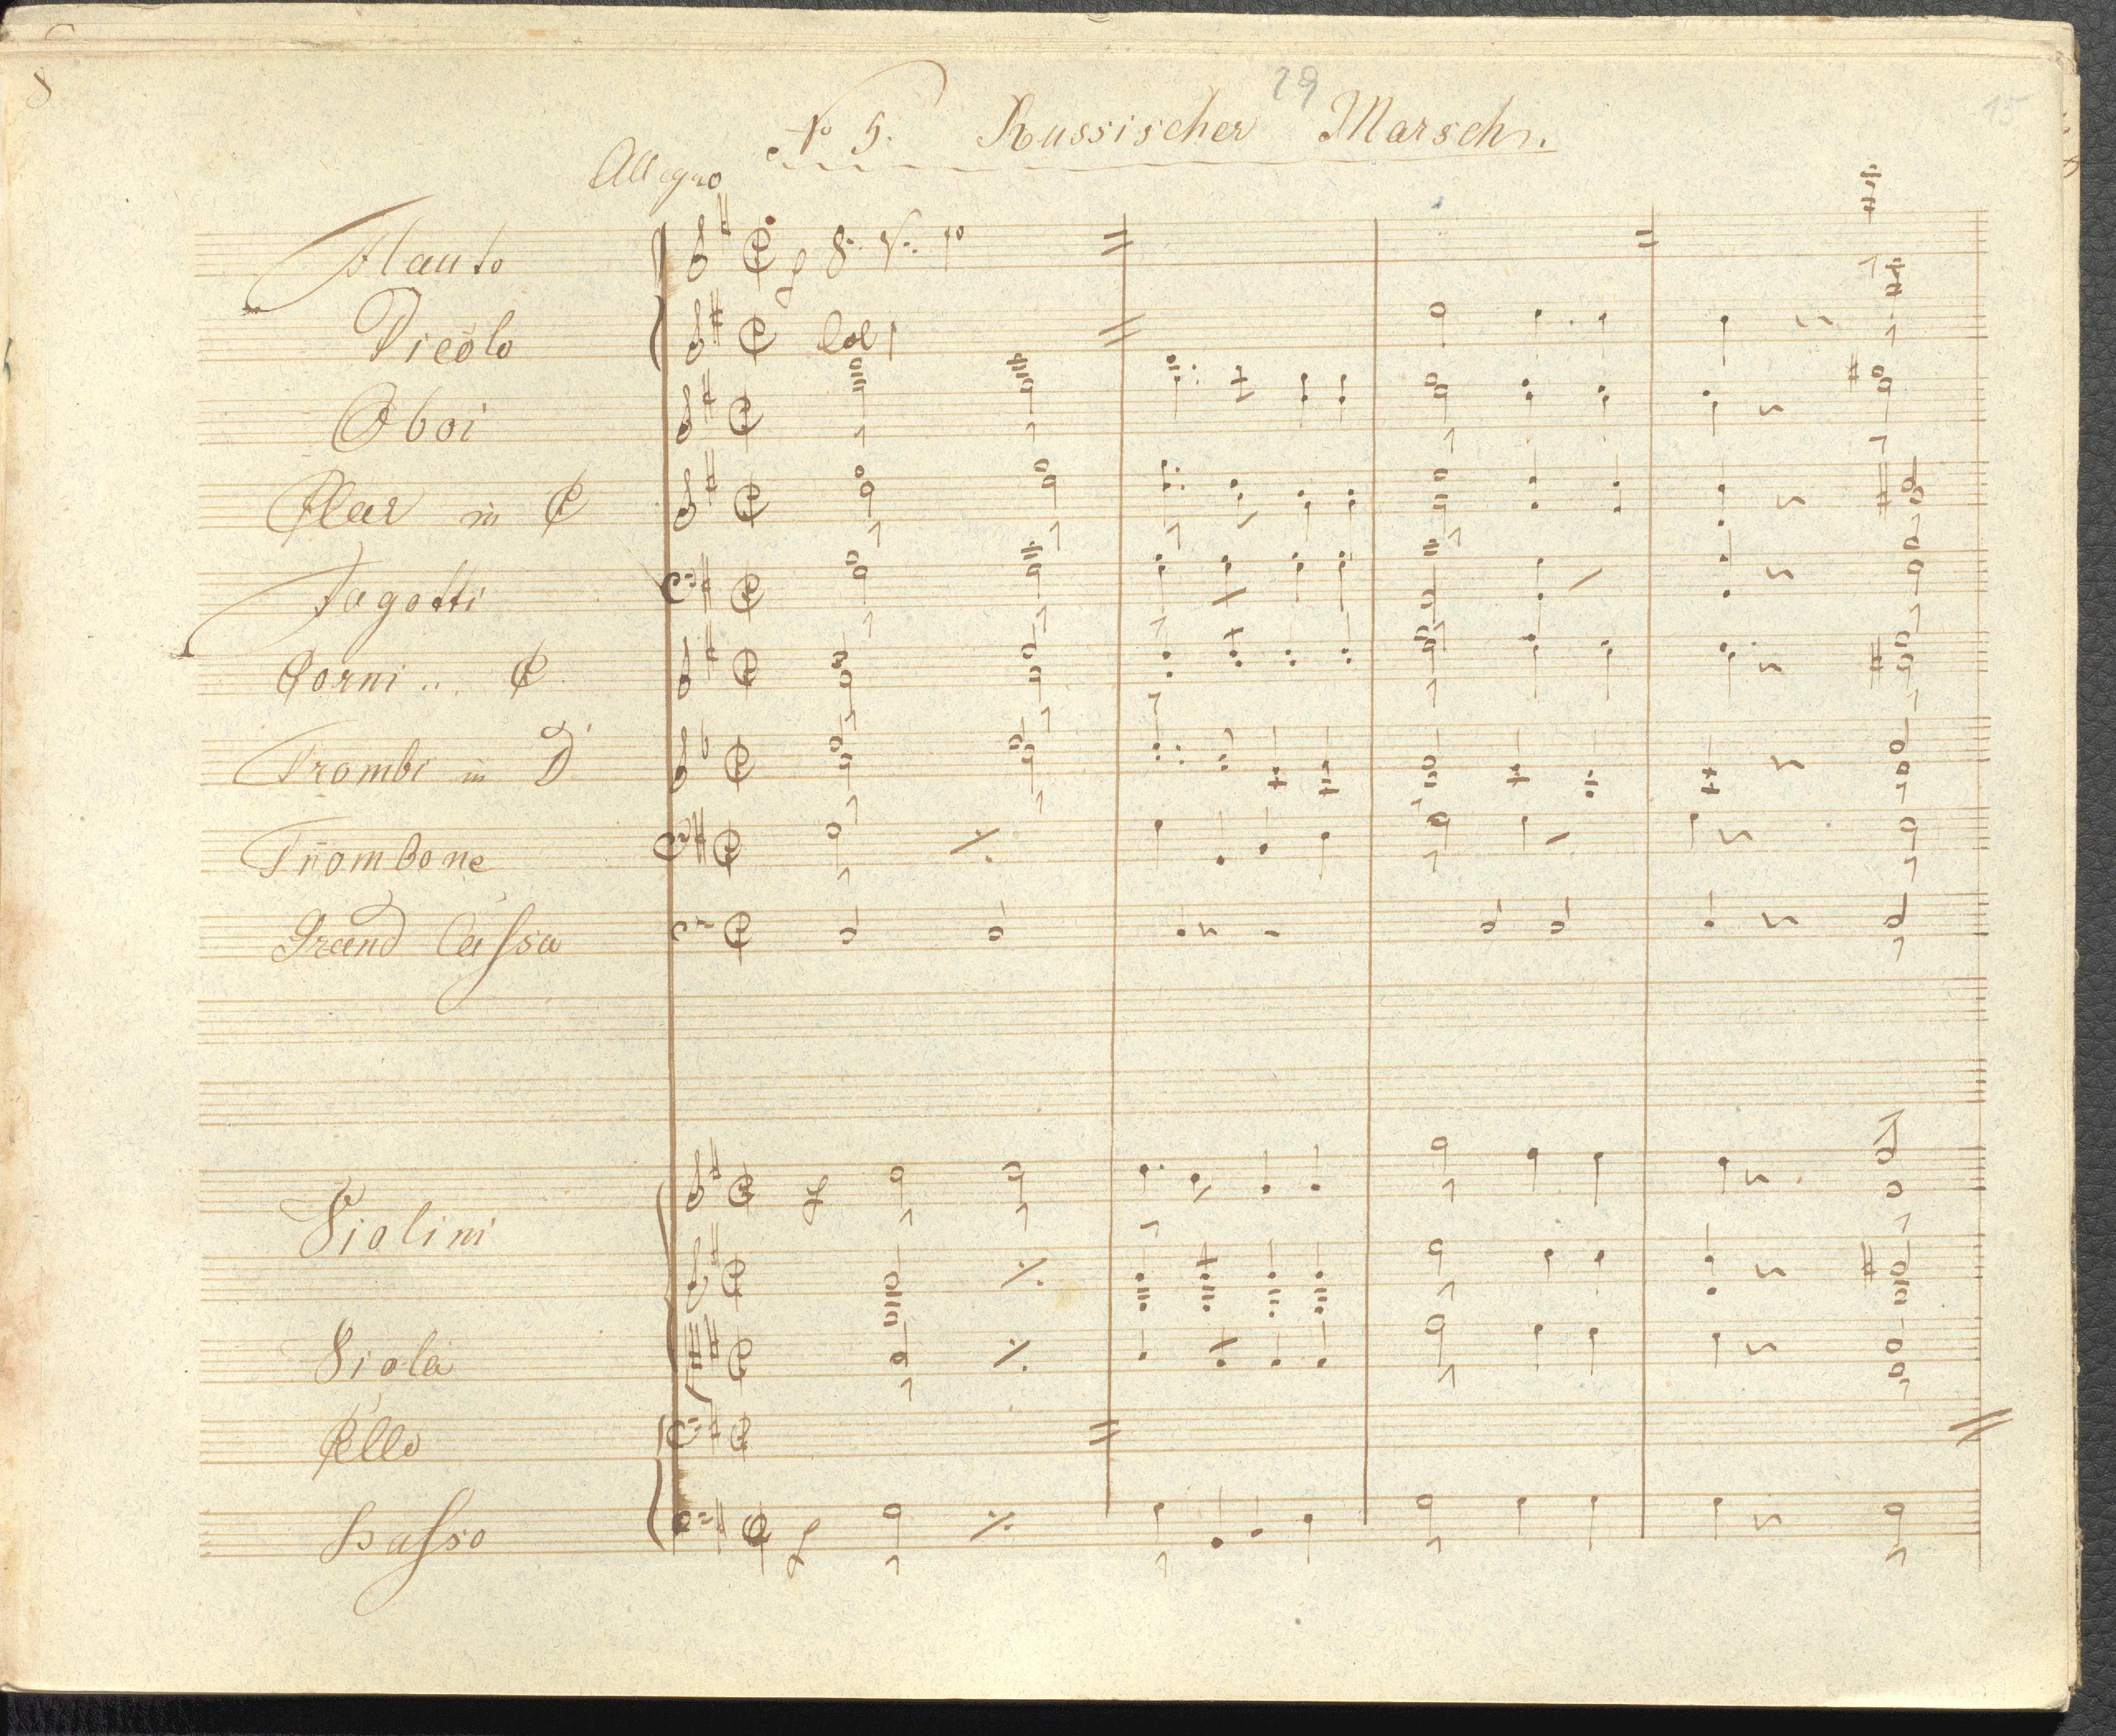 8
29
15
No 5. Russischer Marsch.
Allegro
Flauto
f 8: V: 1o
Picolo
Col 1
Oboi
Clar in C
Fagotti
Corni .. C
Trombe in D
Trombone
Grand Cassa
Violini
f
Viola
Cllo
Basso
f